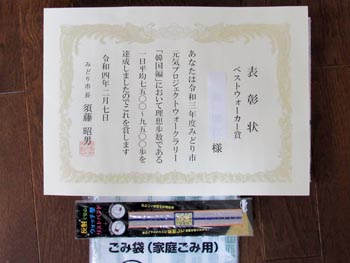 表彰状
ベストウォーカー賞
様
あなたは令和三年度みどり市
元気プロジェクトウォークラリー
「韓国編」において理想歩数である
一日平均七五〇〇～九五〇〇歩を
達成しましたのでこれを賞します
令和四年二月七日
みどり市長 須藤昭男
ごみ袋（家庭ごみ用）